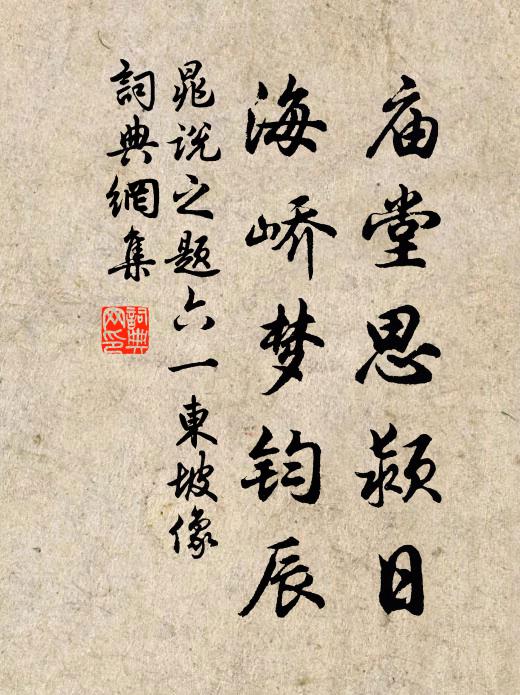 庙堂思颍日
海峤梦钧辰
晁说之题六一東坡像
詞典網集
詞典
网印